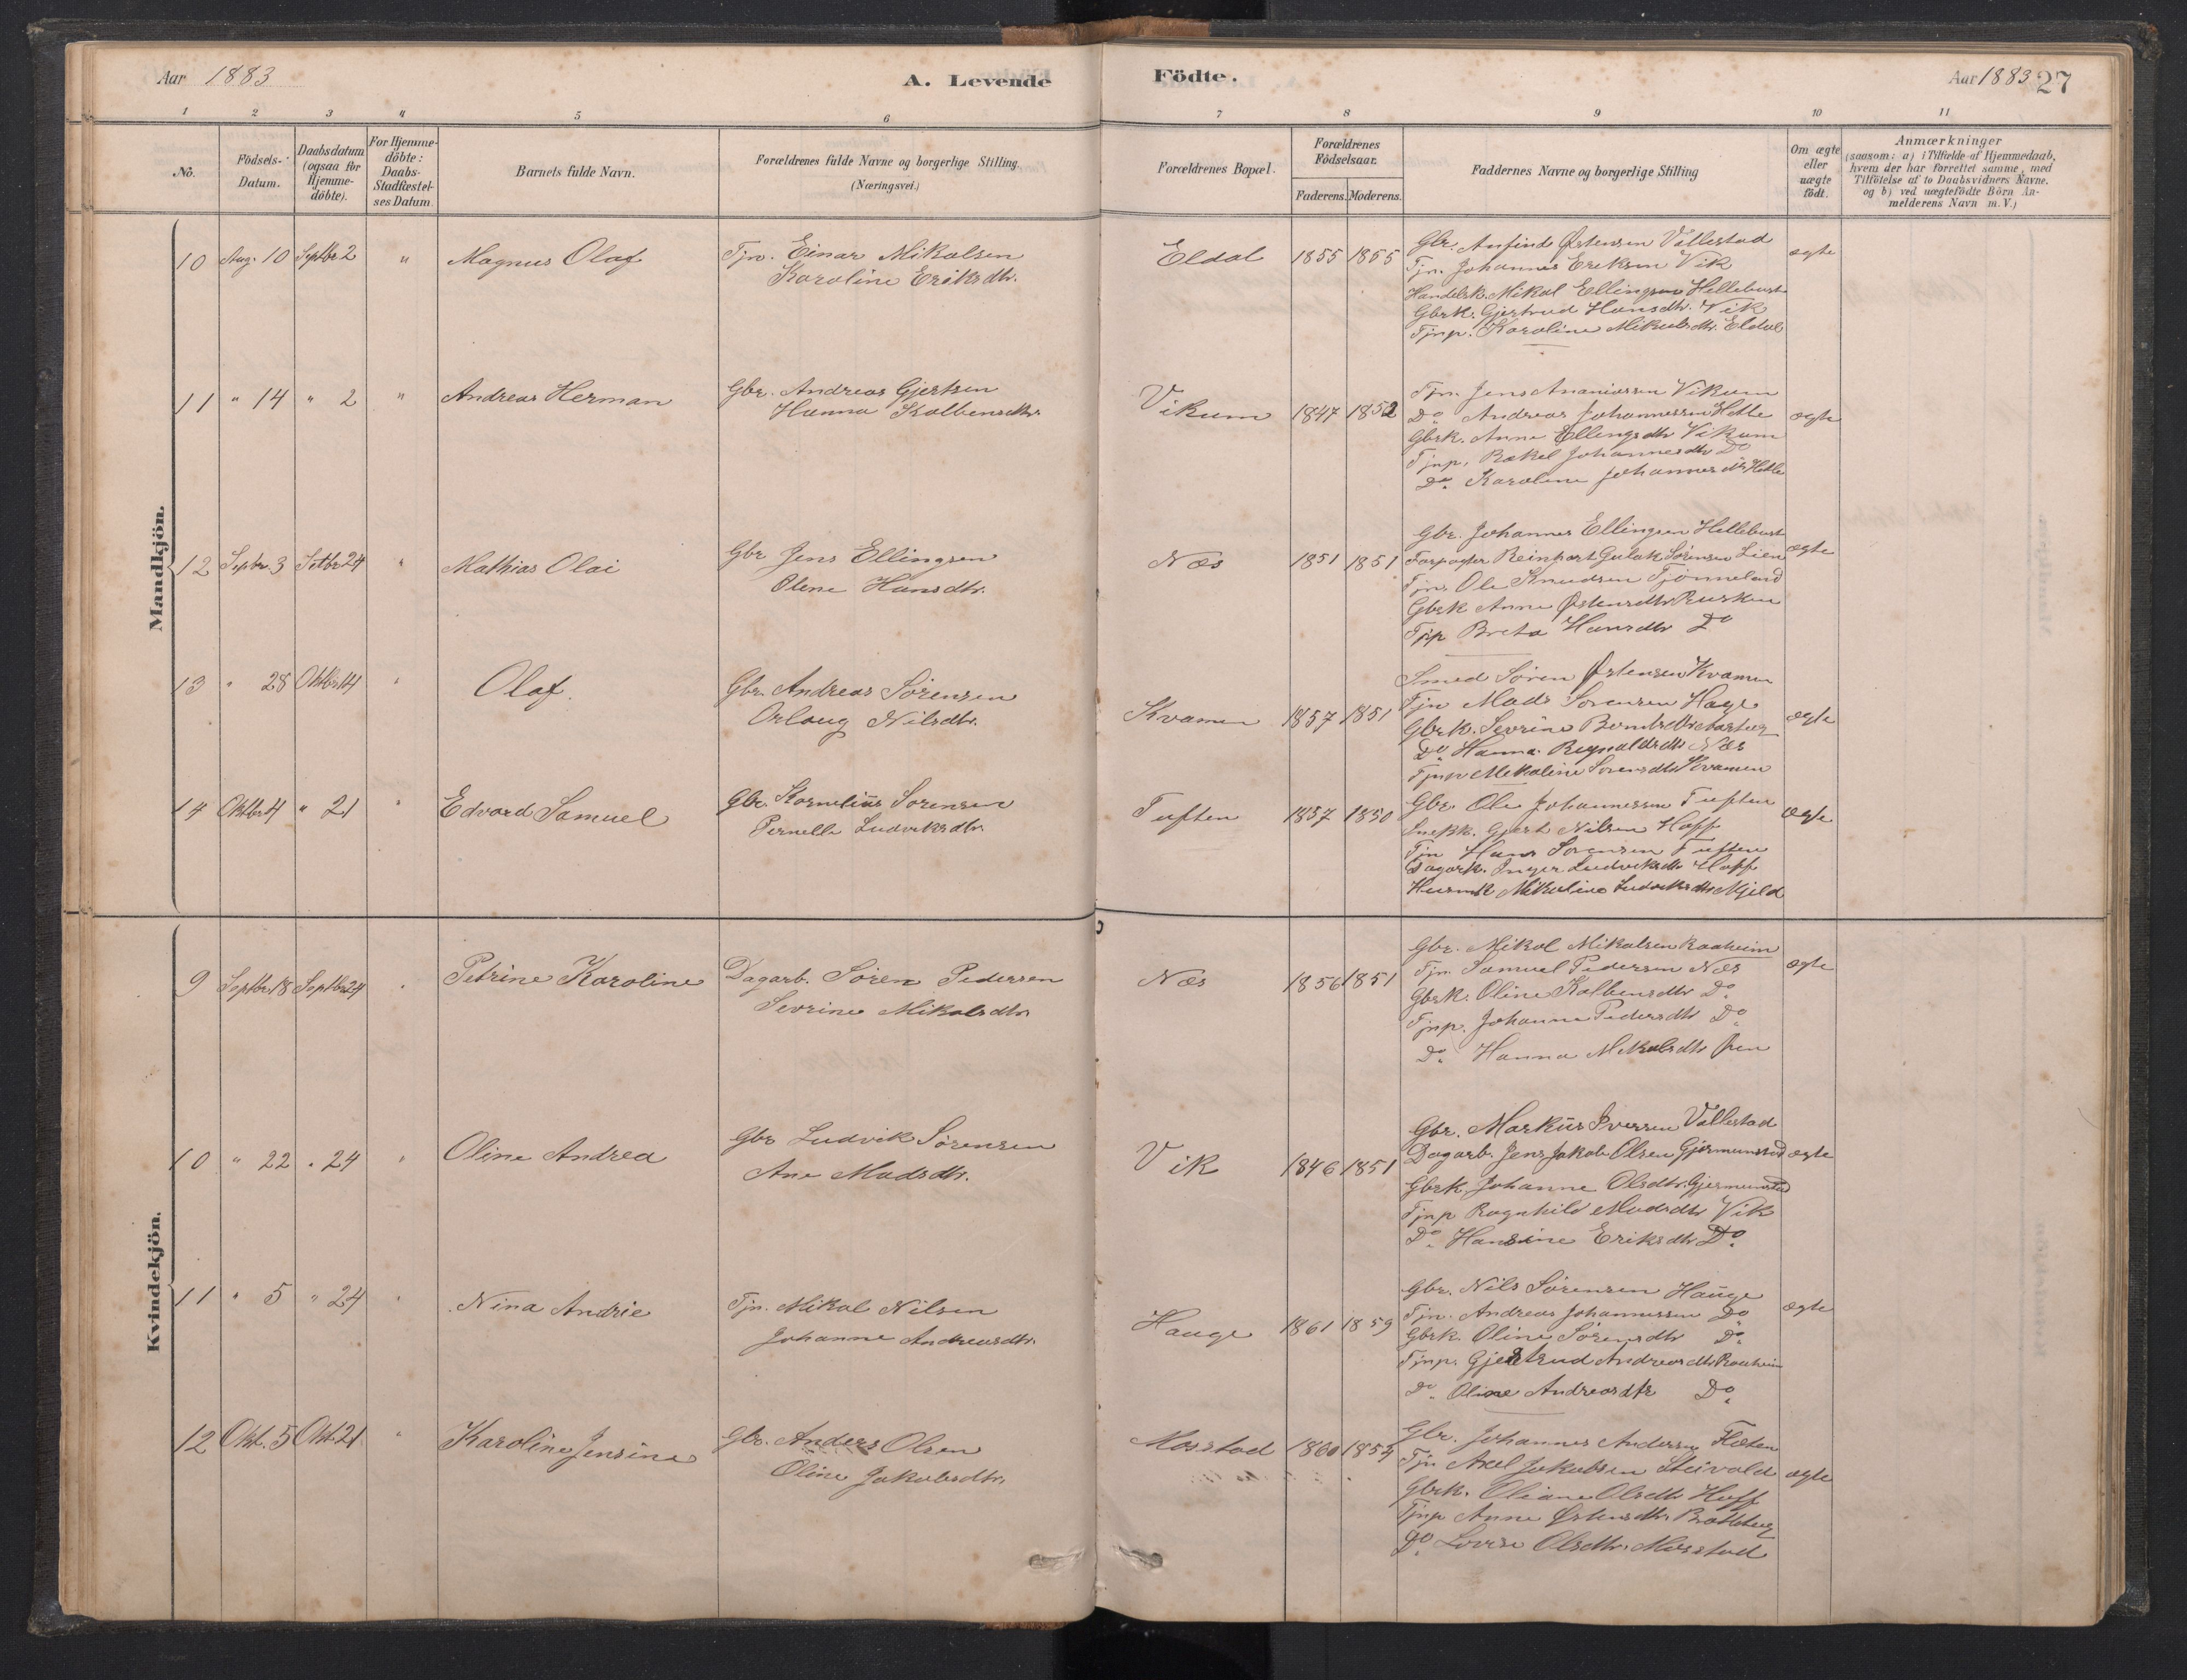 Aar 1883
A. Levende
Födte.
Aar 1883 27
1 2 3 4 5 6 7 8 9 10 11
No.
Födsels-Datum.
Daabsdatum (ogsaa for Hjemme-döbte).
For Hjemme-döbte: Daabs-Stadfæstel-ses Datum.
Barnets fulde Navn.
Forældrenes fulde Navne og borgerlige Stilling.
(Næringsvei.)
Forældrenes Bopæl.
Forældrenes Födselsaar.
Faderens. Moderens.
Faddernes Navne og borgerlige Stilling
Om ægte eller uægte födt.
Anmærkninger
(saasom: a) i Tilfælde af Hjemmedaab,
hvem der har forrettet samme, med
Tilföielse af to Daabsvidners Navne.
og b) ved uægtefödte Börn An-
melderens Navn m. V.)
Mandkjön.
10 Aug. 10 Septbr 2 " Magnus Olaf
Tjn. Einar Mikalsen
Karoline Eriksdtr.
Eldal 1855 1855
Gbr. Anfind Østensen Vallestad
Tjn. Johannes Eriksen Vik
Handelsk. Mikal Ellingsen Hellebust
Gbrk. Gjertrud Hansdtr. Vik
Tjnp. Karoline Mikalsdtr. Eldal
ægte
11 " 14 " 2 " Andreas Herman
Gbr. Andreas Gjertsen
Hanna Kolbensdtr.
Vikum 1847 1852
Tjn. Jens Ananiassen Vikum
Do Andreas Johannessen Hetle
Gbrk. Anne Ellingsdtr Vikum
Tjnp. Rakel Johannesdtr Do
Do. Karoline Johannesdtr Hetle
ægte
12 Septbr. 3 Septbr 24 " Mathias Olai
Gbr Jens Ellingsen
Olene Hansdtr.
Næs 1851 1851
Gbr. Johannes Ellingsen Hellebust
Forpagter Reinhart Gulak Sørensen Lien
Tjn. Ole Knudsen Tjønneland
Gbrk Anne Østensdtr Rusken
Tjp Breta Hansdtr Do
ægte
13 " 28 Oktbr 14 " Olaf.
Gbr. Andreas Sörensen
Orlaug Nilsdtr.
Kvamen 1857 1851
Smed Sören Østensen Kvamen
Tjn Mads Sorensen Hage
Gbrk. Sevrine
Do. Hanna Næs
Tjnp Mikaline Sorensdtr Kvamen
ægte
14 Oktbr 4 " 21 " Edvard Samuel
Gbr. Kornelius Sorensen
Pernelle Ludviksdtr
Tuften 1857 1850
Gbr. Ole Johannessen Tuften
Snekk. Gjert Nilsen Hoff
Tjn Hans Sorensen Tuften
Dagark. Inger Ludviksdtr Hoff
Husmk Mikaline Ludviksdtr Mjeld
ægte
Kvindekjön.
9 Septbr. 18 Septbr 24 " Petrine Karoline
Dagarb. Sören Pedersen
Sevrine Mikalsdtr
Næs 1856 1851
Gbr. Mikal Mikalsen Raaheim
Tjn. Samuel Pedersen Næs
Gbrk. Oline Kolbensdtr Do.
Tjnp. Johanne Pedersdtr Do.
Do. Hanna Mikalsdtr Øen
ægte
10 " 22 " 24 " Oline Andrea
Gbr Ludvik Sörensen
Ane Madsdtr.
Vik 1846 1851
Gbr. Markus Iversen Vallestad
Dagarb. Jens Jakob Olsen Gjermunstad
Gbrk. Johanne Olsdtr. Gjermunstad
Tjnp Ragnhild Madsdtr Vik
Do. Hansine Eriksdtr Do.
ægte
11 " 5 " 24 " Nina Andrie
Tjn. Mikal Nilsen
Johanne Andreasdtr.
Hauge 1861 1859
Gbr. Nils Sörensen Hauge
Tjn. Andreas Johannessen Do
Gbrk. Oline Sörensdtr Do.
Tjnp. Gjertrud Andreasdtr Raaheim
Do. Oline Andreasdtr Do.
ægte
12 Okt. 5 Okt. 21 " Karoline Jensine
Gbr. Anders Olsen
Oline Jakobsdtr.
Mosstad 1860 1854
Gbr. Johannes Andersen Flæten
Tjn Axel Jakobsen Steivold
Gbrk. Oliane Olsdtr Hoff
Tjnp Anne Østensdtr Bratteteig
Do. Lovise Olsdtr. Mosstad
ægte